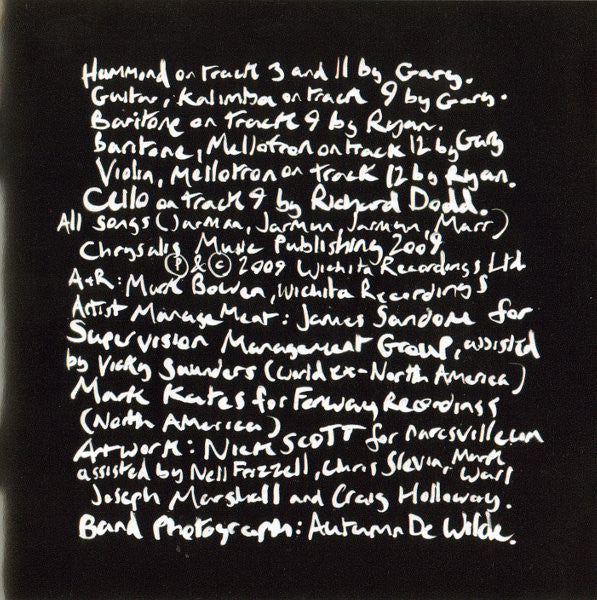 Hammond on track 3 and 11 by Gary.
Guitar, Kalimba on track 9 by Gary.
Baritone on track 9 by Ryan.
Baritone, Mellotron on track 12 by Gary
Violin, Mellotron on track 12 by Ryan.
Cello on track 9 by Richard Dodd.
All songs (Jarman, Jarman, Jarman, Marr)
Chrysalis Music Publishing 2009
Ⓟ & © 2009 Wichita Recordings Ltd
A+R: Mark Bowen, Wichita Recordings
Artist Management: James Sandom for
Supervision Management Group, assisted
by Vicky Saunders (World ex-North America)
Mark Kates for Fenway Recordings
(North America)
Artwork: Nick Scott for narcsville.com
assisted by Nell Frizzell, Chris Slevin, Mark Warl
Joseph Marshall and Craig Holloway.
Band Photograph: Autumn De Wilde.